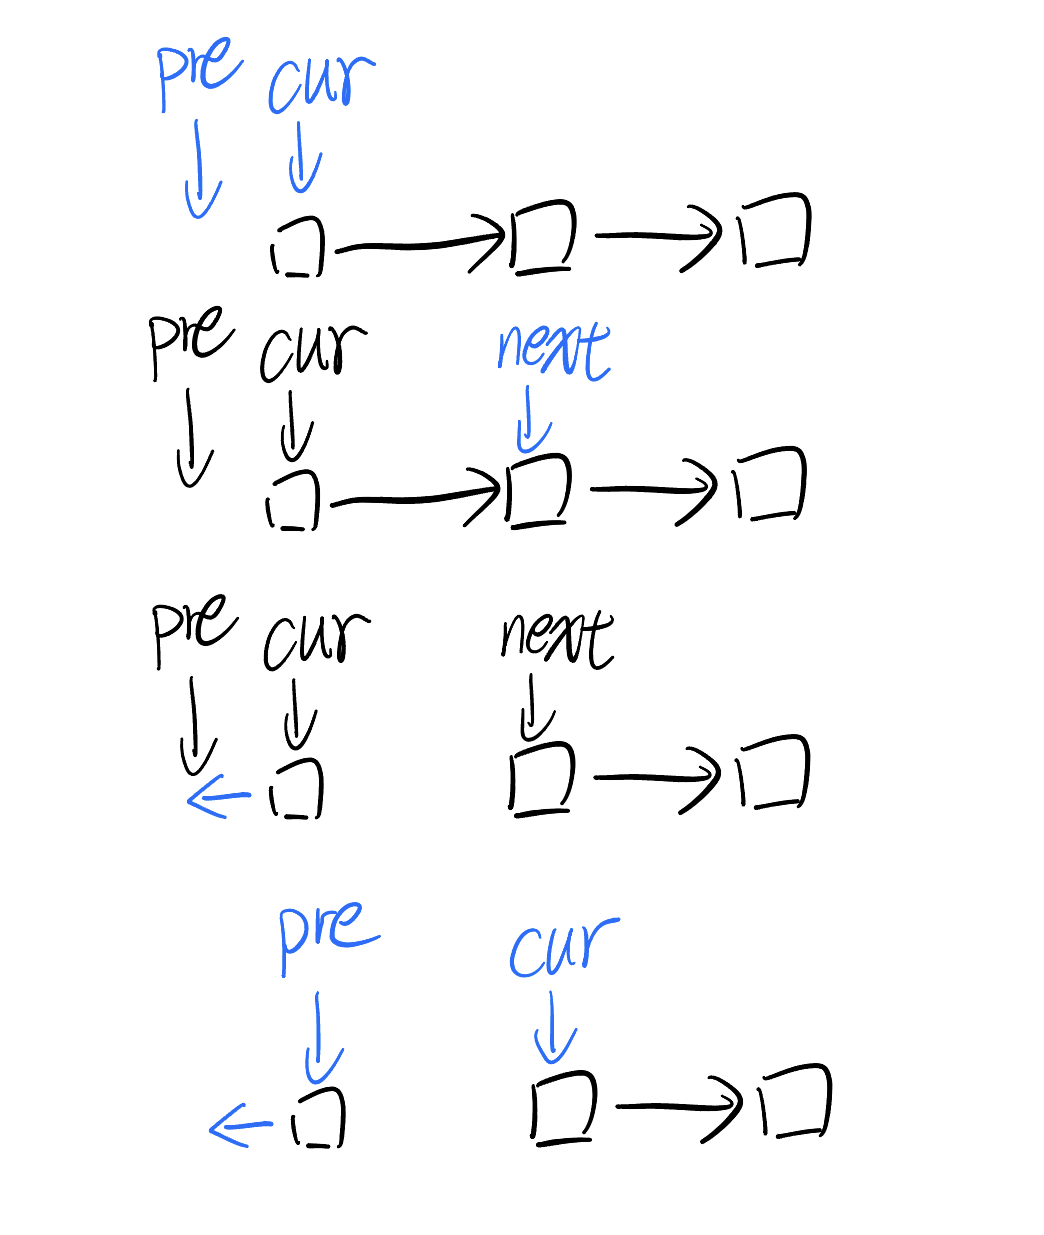 pre cur
pre cur next
pre cur next
pre cur